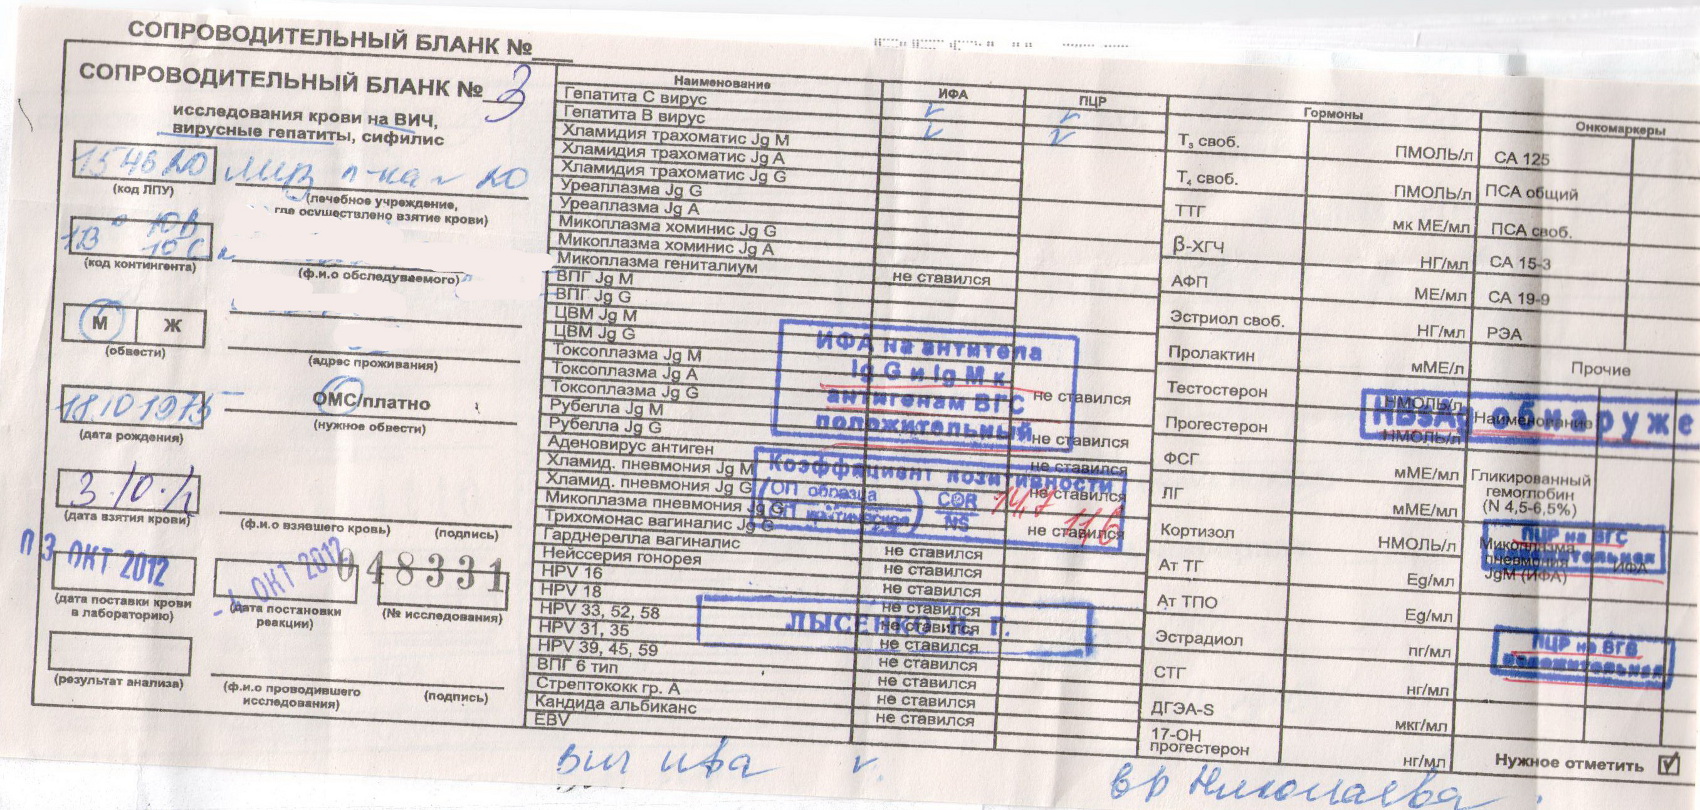 СОПРОВОДИТЕЛЬНЫЙ БЛАНК №
СОПРОВОДИТЕЛЬНЫЙ БЛАНК № 3
исследования крови на ВИЧ,
вирусные гепатиты, сифилис
154620
(код ЛПУ)
20
(лечебное учреждение,
где осуществлено взятие крови)
(код контингента)
(ф.и.о обследуемого)
М Ж
(обвести)
(адрес проживания)
18 10 1975
(дата рождения)
ОМС/платно
(нужное обвести)
3.10.12
(дата взятия крови)
(ф.и.о взявшего кровь) (подпись)
ОКТ 2012
(дата поставки крови
в лабораторию)
- 4 ОКТ 2012
(дата постановки
реакции)
048331
(№ исследования)
(результат анализа)
(ф.и.о проводившего
исследования)
(подпись)
Наименование ИФА ПЦР
Гепатита С вирус
Гепатита В вирус
Хламидия трахоматис Jg M
Хламидия трахоматис Jg A
Хламидия трахоматис Jg G
Уреаплазма Jg G
Уреаплазма Jg A
Микоплазма хоминис Jg G
Микоплазма хоминис Jg A
Микоплазма гениталиум
ВПГ Jg M не ставился
ВПГ Jg G
ЦВМ Jg M
ЦВМ Jg G
Токсоплазма Jg M
Токсоплазма Jg A
Токсоплазма Jg G не ставился
Рубелла Jg M
Рубелла Jg G не ставился
Аденовирус антиген не ставился
Хламид. пневмония Jg M
Хламид. пневмония Jg G не ставился
Микоплазма пневмония Jg G
Трихомонас вагиналис Jg G не ставился
Гарднерелла вагиналис не ставился
Нейссерия гонорея не ставился
HPV 16 не ставился
HPV 18 не ставился
HPV 33, 52, 58 не ставился
HPV 31, 35 не ставился
HPV 39, 45, 59 не ставился
ВПГ 6 тип не ставился
Стрептококк гр. А не ставился
Кандида альбиканс не ставился
EBV
ИФА на антитела
Ig G и Ig M к
антигенам ВГС
положительный
Коэффициент позитивности
ОП образца
COR
NS
14,7 11,6
ЛЫСЕНКО Н. Г.
Гормоны
Т₃ своб. ПМОЛЬ/л
Т₄ своб. ПМОЛЬ/л
ТТГ мк МЕ/мл
β-ХГЧ НГ/мл
АФП МЕ/мл
Эстриол своб. НГ/мл
Пролактин мМЕ/л
Тестостерон НМОЛЬ/л
Прогестерон НМОЛЬ/л
ФСГ мМЕ/мл
ЛГ мМЕ/мл
Кортизол НМОЛЬ/л
Ат ТГ Eg/мл
Ат ТПО Eg/мл
Эстрадиол пг/мл
СТГ нг/мл
ДГЭА-S мкг/мл
17-ОН
прогестерон нг/мл
Онкомаркеры
СА 125
ПСА общий
ПСА своб.
СА 15-3
СА 19-9
РЭА
Прочие
Наименование
HBsAg обнаруже
Гликированный
гемоглобин
(N 4,5-6,5%)
Микоплазма
пневмония
JgM (ИФА)
ИФА
ПЦР на ВГС
положительная
ПЦР на ВГВ
положительная
Нужное отметить
вич ифа
вр Николаева